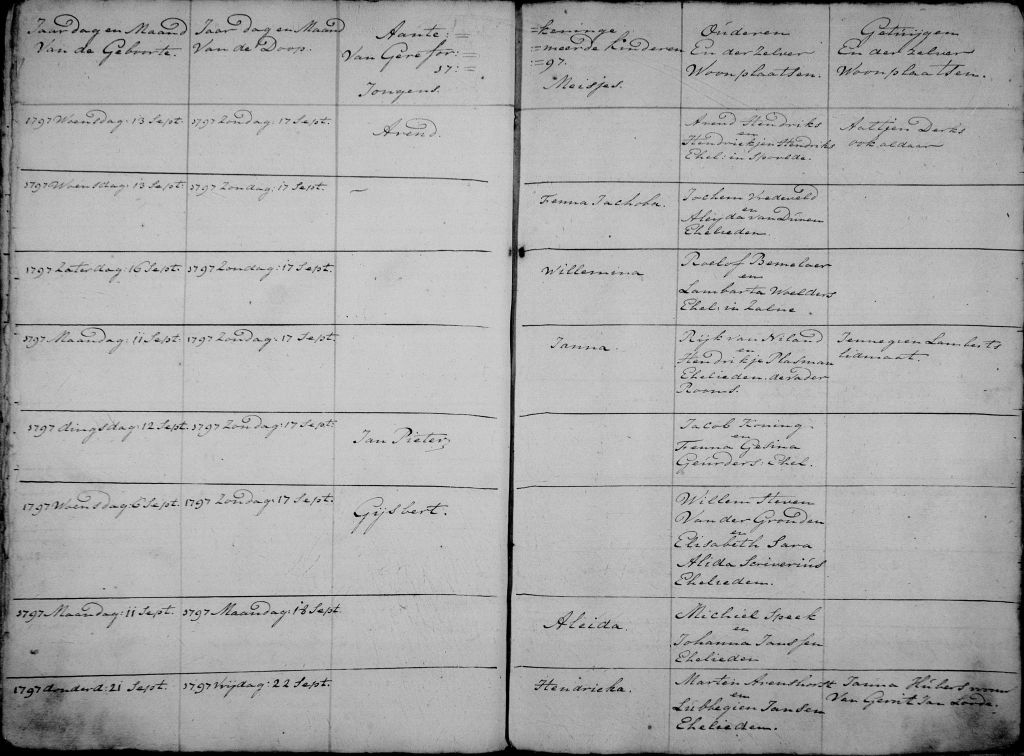 Jaar dag en Maand
Van de Geboorte.
Jaar dag en Maand
Van de Doop.
Aante: =
Van Gerefor: =
17: =
Jongens.
= keninge
= meerde kinderen
:= 97.
Meisjes.
Ouderen
En der zelver
Woonplaatsen.
Getuijgen
En der zelver
Woonplaatsen.
1797 Woensdag: 13 Sept. 1797 Zondag: 17 Sept.
Arend.
Arend Hendriks
en
Hendrickjen Hendriks
Ehel: in Spoolde.
Aaltjen Derks
ook aldaar
1797 Woensdag: 13 Sept. 1797 Zondag: 17 Sept.
–
Fenna Jachoba.
Jochem Vredeveld
en
Aleijda van Duren
Ehelieden.
1797 Zaterdag: 16 Sept. 1797 Zondag: 17 Sept.
Willemina
Roelof Bemelaer
en
Lambarta Woelders
Ehel: in Zalne.
1797 Maandag: 11 Sept. 1797 Zondag: 17 Sept.
Janna.
Rijk van Niland
en
Hendrikje Plasman
Ehelieden. de vader
Rooms.
Jennegien Lamberts
lidmaat.
1797 dingsdag: 12 Sept. 1797 Zondag: 17 Sept.
Jan Pieter
Jacob Koning
en
Fenna Gesina
Geurders: Ehel.
1797 Woensdag: 6 Sept. 1797 Zondag: 17 Sept.
Gijsbert.
Willem Steven
Van der Gronden
en
Elisabeth Sara
Alida Scriverius
Ehelieden.
1797 Maandag: 11 Sept. 1797 Maandag: 18 Sept.
Aleida.
Michiel Speek
en
Johanna Janssen
Ehelieden
1797 donderd: 21 Sept. 1797 Vrijdag: 22 Sept.
Hendricka.
Marten Arenshorst
en
Lubbegien Jansen
Ehelieden.
Janna Hubers
Van Gerrit Jan